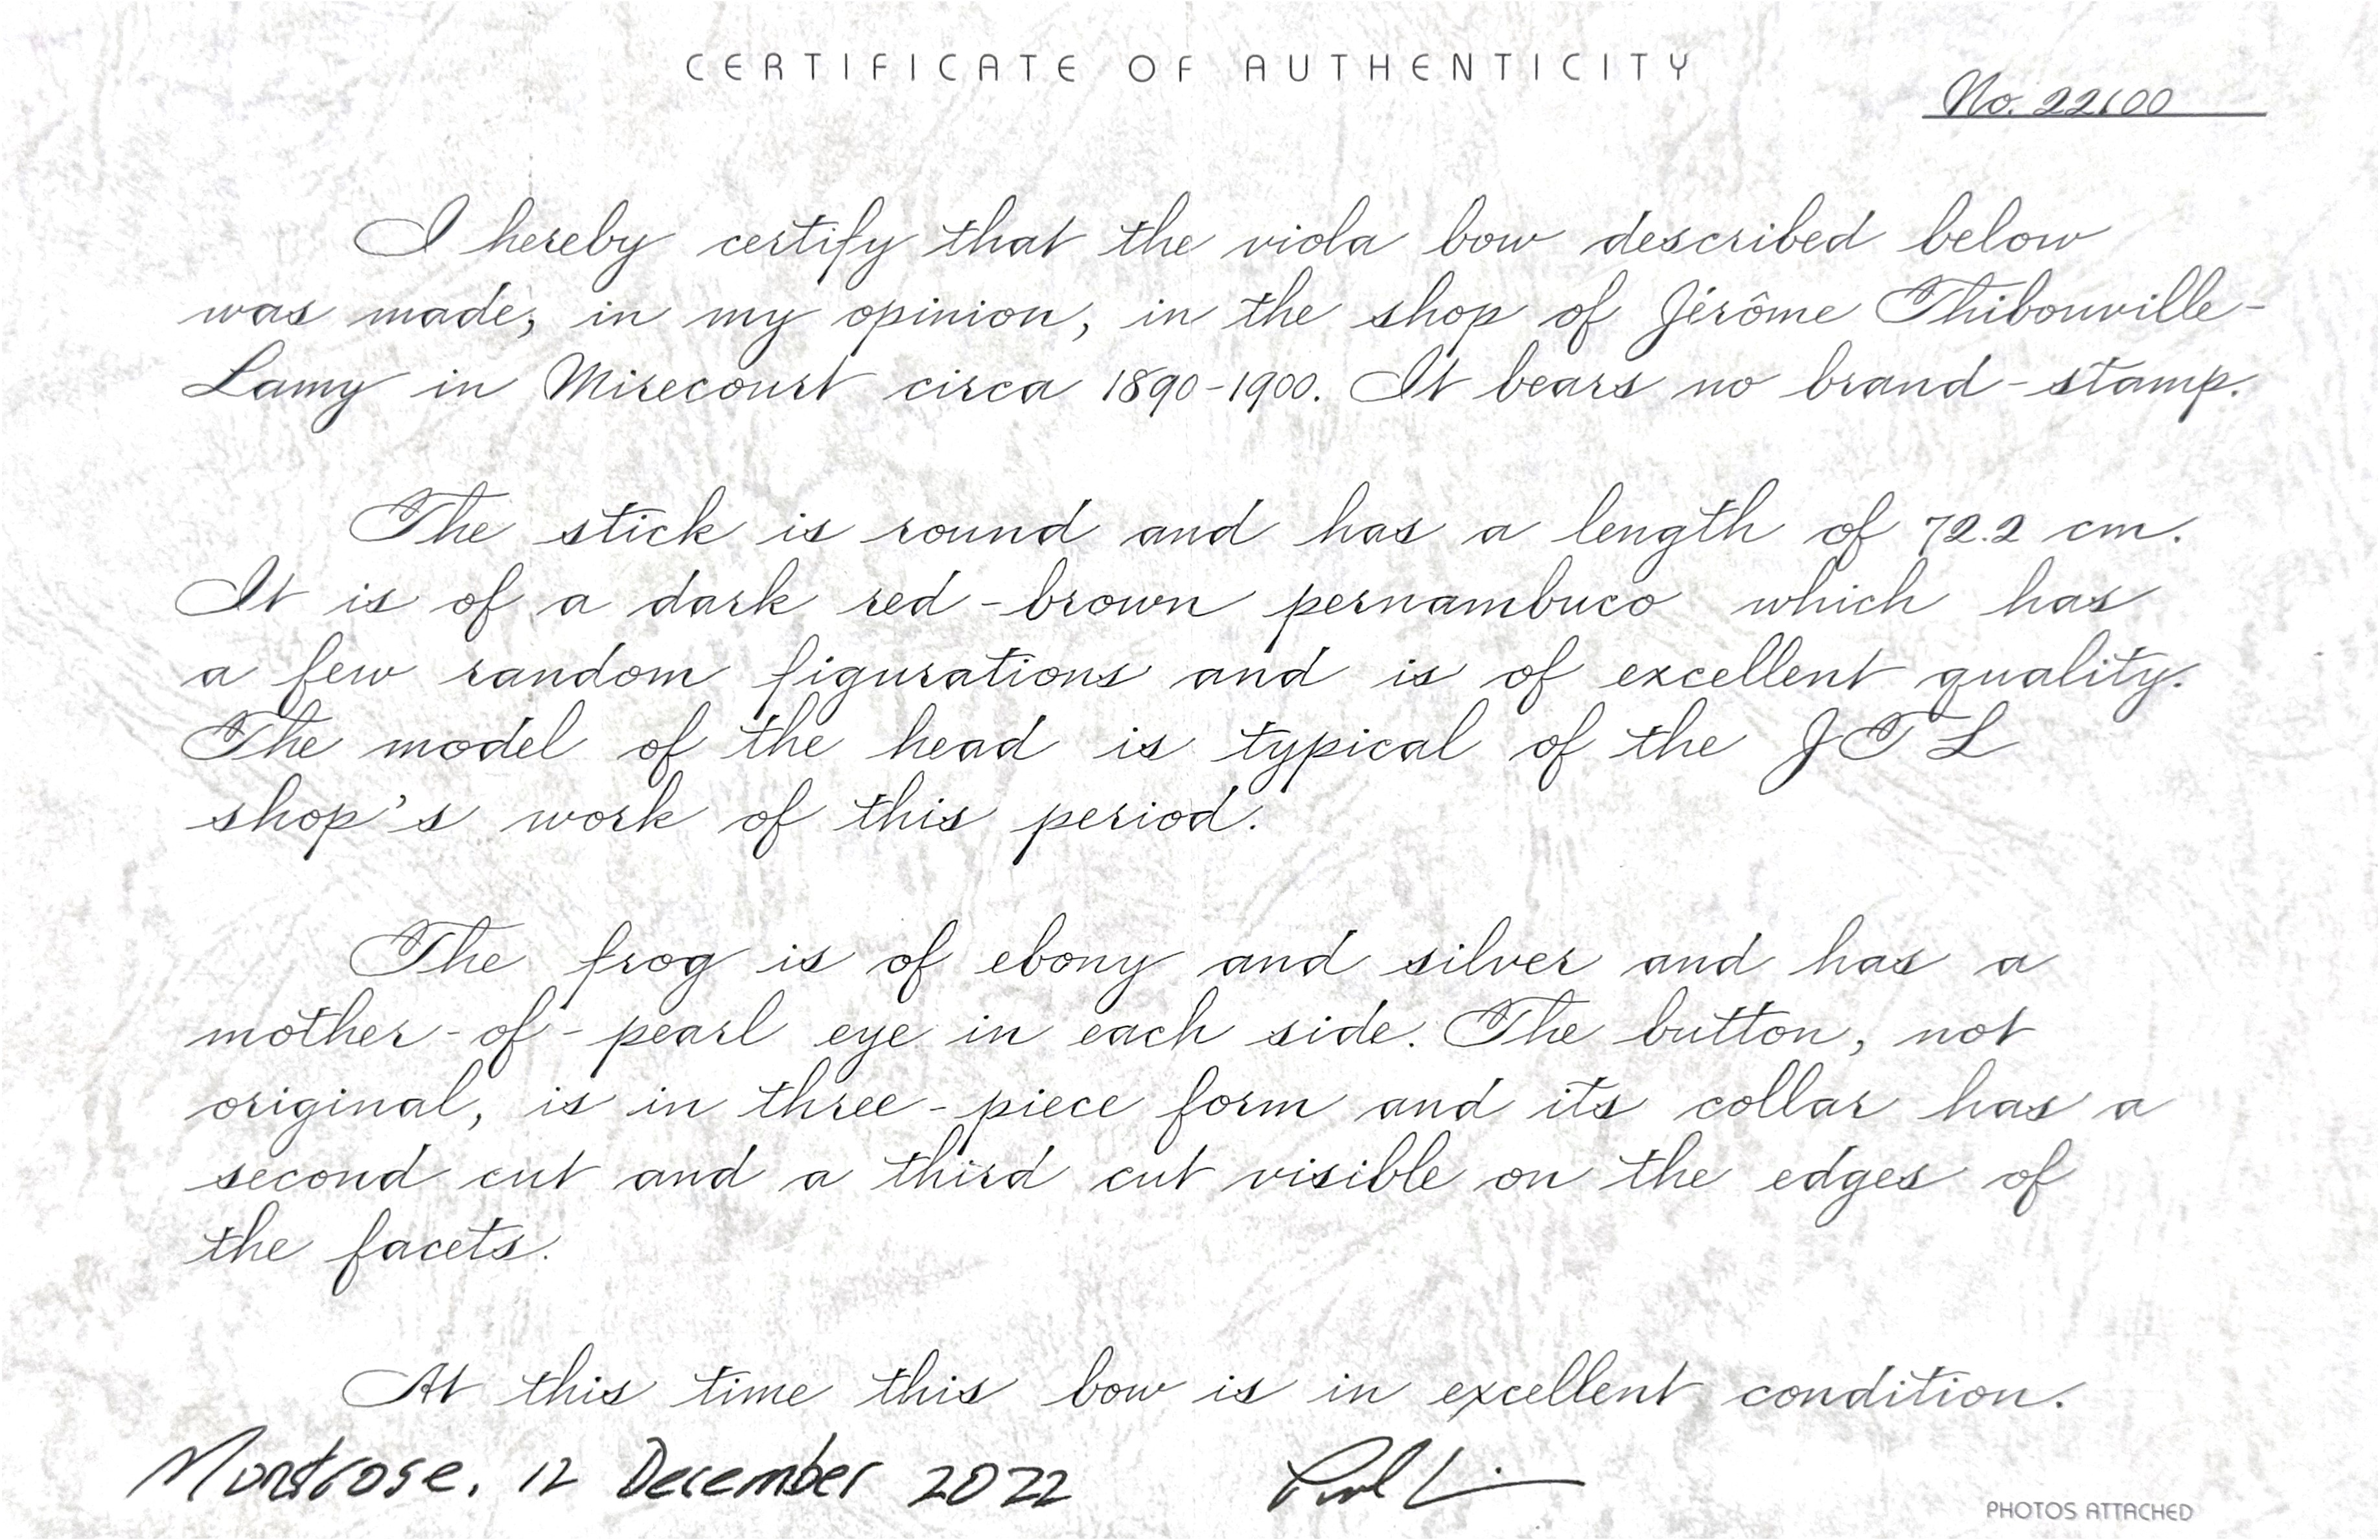 CERTIFICATE OF AUTHENTICITY
No. 22100
I hereby certify that the viola bow described below
was made, in my opinion, in the shop of Jérôme Thibouville-
Lamy in Mirecourt circa 1890-1900. It bears no brand-stamp.
The stick is round and has a length of 72.2 cm.
It is of a dark red-brown pernambuco which has
a few random figurations and is of excellent quality.
The model of the head is typical of the JTL
shop's work of this period.
The frog is of ebony and silver and has a
mother-of-pearl eye in each side. The button, not
original, is in three-piece form and its collar has a
second cut and a third cut visible on the edges of
the facets.
At this time this bow is in excellent condition.
Montrose, 12 December 2022
PHOTOS ATTACHED